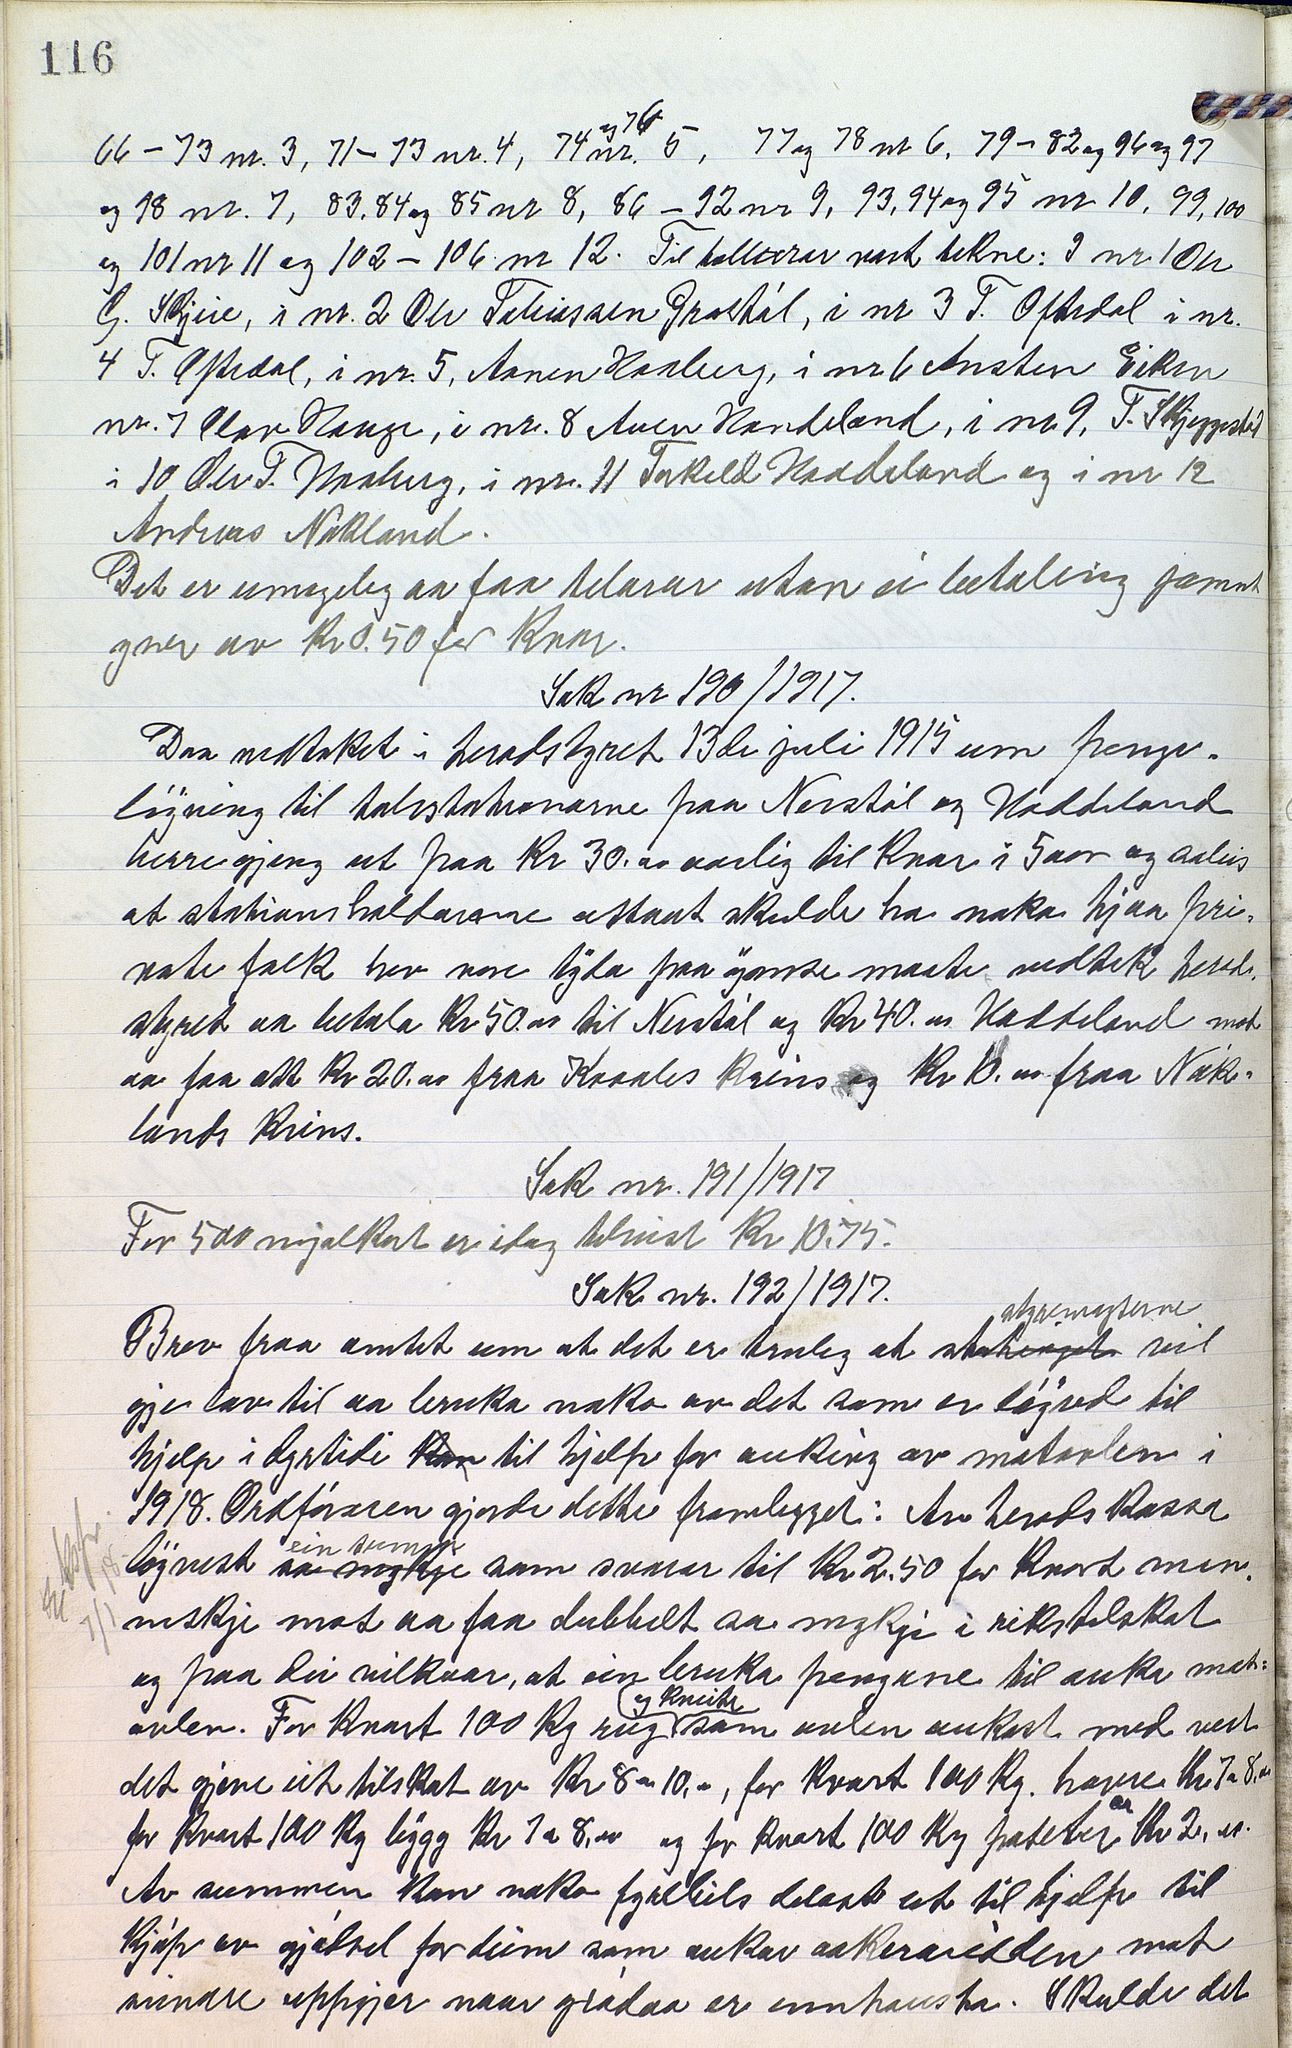 116
66 – 73 nr. 3, 71 – 73 nr. 4, 74 og 76 nr. 5, 77 og 78 nr 6, 79 – 82 og 96 og 97
og 98 nr. 7, 83, 84 og 85 nr 8, 86 – 92 nr 9, 93, 94 og 95 nr 10, 99, 100
og 101 nr 11 og 102 – 106 nr 12. Til vart tekne: I nr. 1 Olv
G. Skjeie, i nr. 2 Olv Tobiassen Grostøl, i nr 3 T. Oftedal i nr.
4 T. Oftedal, i nr. 5, Aanen Haaberg, i nr 6 Ansten Eiken
nr. 7 Olav Hauge, i nr. 8 Aven Handeland, i nr 9, T. Skjeggestad
i 10 Olv T. Haaberg, i nr. 11 Torkeld Haddeland og i nr 12
Andreas Nakland.
Det er umogeleg aa faa teljarar utan ei betaling jamnt
yver av Kr 0.50 for kvar.
Sak nr 190/1917.
Daa vedtaket i heradstyret 13de juli 1915 um penge-
løyving til talestationarne paa Nerstøl og Haddeland
berre gjeng ut paa Kr 30.00 aarlig til kvar i 5 aar og soleis
at stationshaldarane attaat skulde ha noko hjaa pri-
vate folk hev vore tyda paa ymse maate vedtek herads-
styret aa betala Kr 50.00 til Nerstøl og Kr 40.00 Haddeland mot
aa faa att Kr 20.00 fraa Kvaales krins og Kr 10.00 fraa Nak-
lands krins.
Sak nr. 191/1917
For 500 mjølkort er idag tilvist Kr 10.75.
Sak nr. 192/1917.
styremagterne
Brev fraa amtet um at det er truleg at statinget vil
gje lov til aa bruka noko av det som er løyvd til
hjelp i dyrtidi kan til hjelp for auking av matavlen i
1918. Ordføraren gjorde dette framlegget: Av herads kassa
ein summ
løyvest saa mykje som svarar til Kr 2.50 for kvart men-
neskje mot aa faa dubbelt saa mykje i rikstilskot
og paa dei vilkaar, at ein bruka pengane til auka mat-
og kveite
avlen. For kvart 100 Kg rug som avlen aukast med vert
det gjeve eit tilskot av Kr 8 a 10.00, for kvart 100 Kg. havre Kr. 7 a 8.00
for kvart 100 Kg bygg Kr 7 a 8.00 og for kvart 100 Kg poteter Kr 2.00.
Av summen kan noko fyrebils delast ut til hjelp til
kjøp av gjødsel for deim som aukar aakervidden mot
seinare uppgjer naar grødaa er innhausta. Skulde det